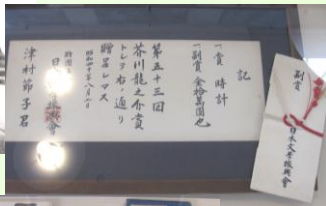 記
一賞 時計
一副賞 金拾萬圓也
第五十三回
芥川龍之介賞
トシテ右ノ通リ
贈呈シマス
昭和四十年八月
日本文學振興會
津村節子君
副賞
日本文學振興會